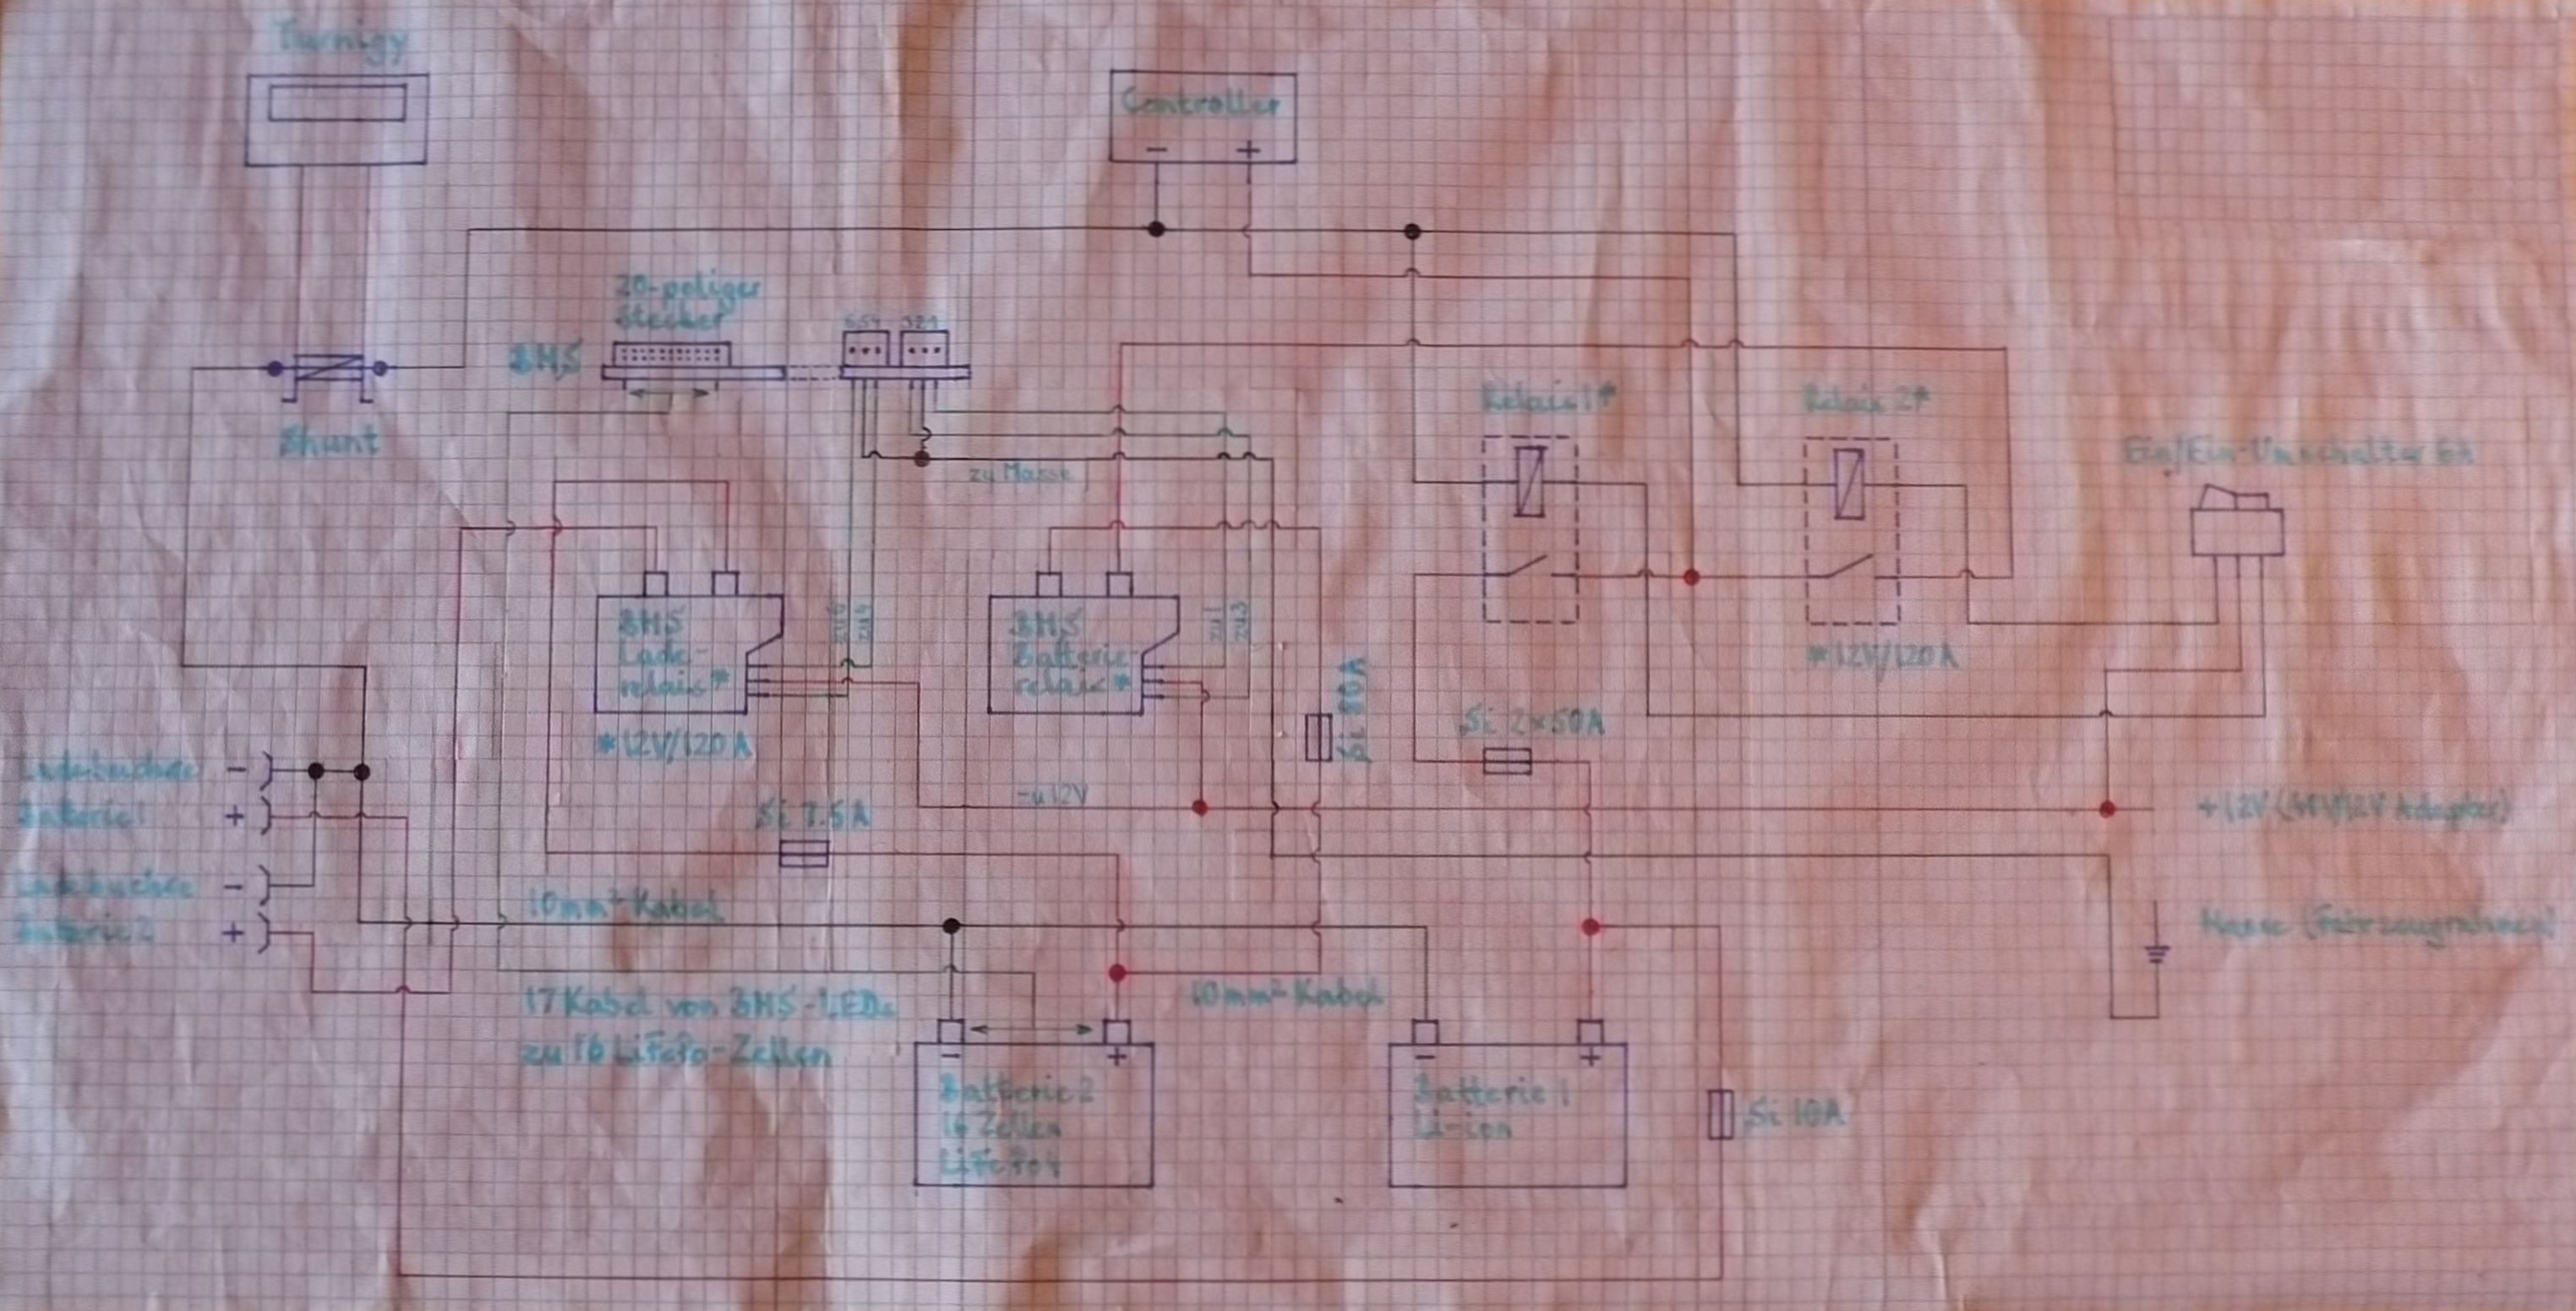 Turnigy
Controller
− +
20-poliger
Stecker
654 321
BMS
Shunt
zu Masse
Relais 1*
Relais 2*
Ein/Ein-Umschalter 6A
BMS
Lade-
relais*
zu 6
zu 4
BMS
Batterie-
relais*
zu 1
zu 3
*12V/120A
*12V/120A
Si 80A
Si 2x50A
Ladebuchse −
Batterie 1 +
Si 7.5A
+12V (48V/12V Adapter)
Ladebuchse −
Batterie 2 +
10mm² Kabel
Masse (Fahrzeugrahmen)
17 Kabel von BMS-LEDs
zu 16 LiFePo-Zellen
10mm² Kabel
− +
Batterie 2
16 Zellen
LiFePo4
− +
Batterie 1
Li-ion
Si 10A